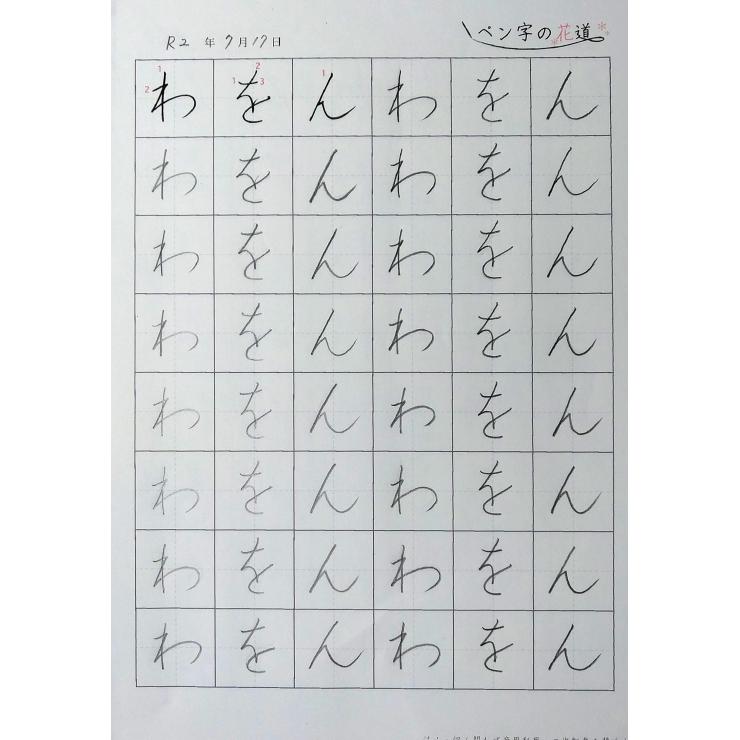 R2 年 7月17日
ペン字の花道
1 2 1
2 1 3
わ を ん わ を ん
わ を ん わ を ん
わ を ん わ を ん
わ を ん わ を ん
わ を ん わ を ん
わ を ん わ を ん
わ を ん わ を ん
わ を ん わ を ん